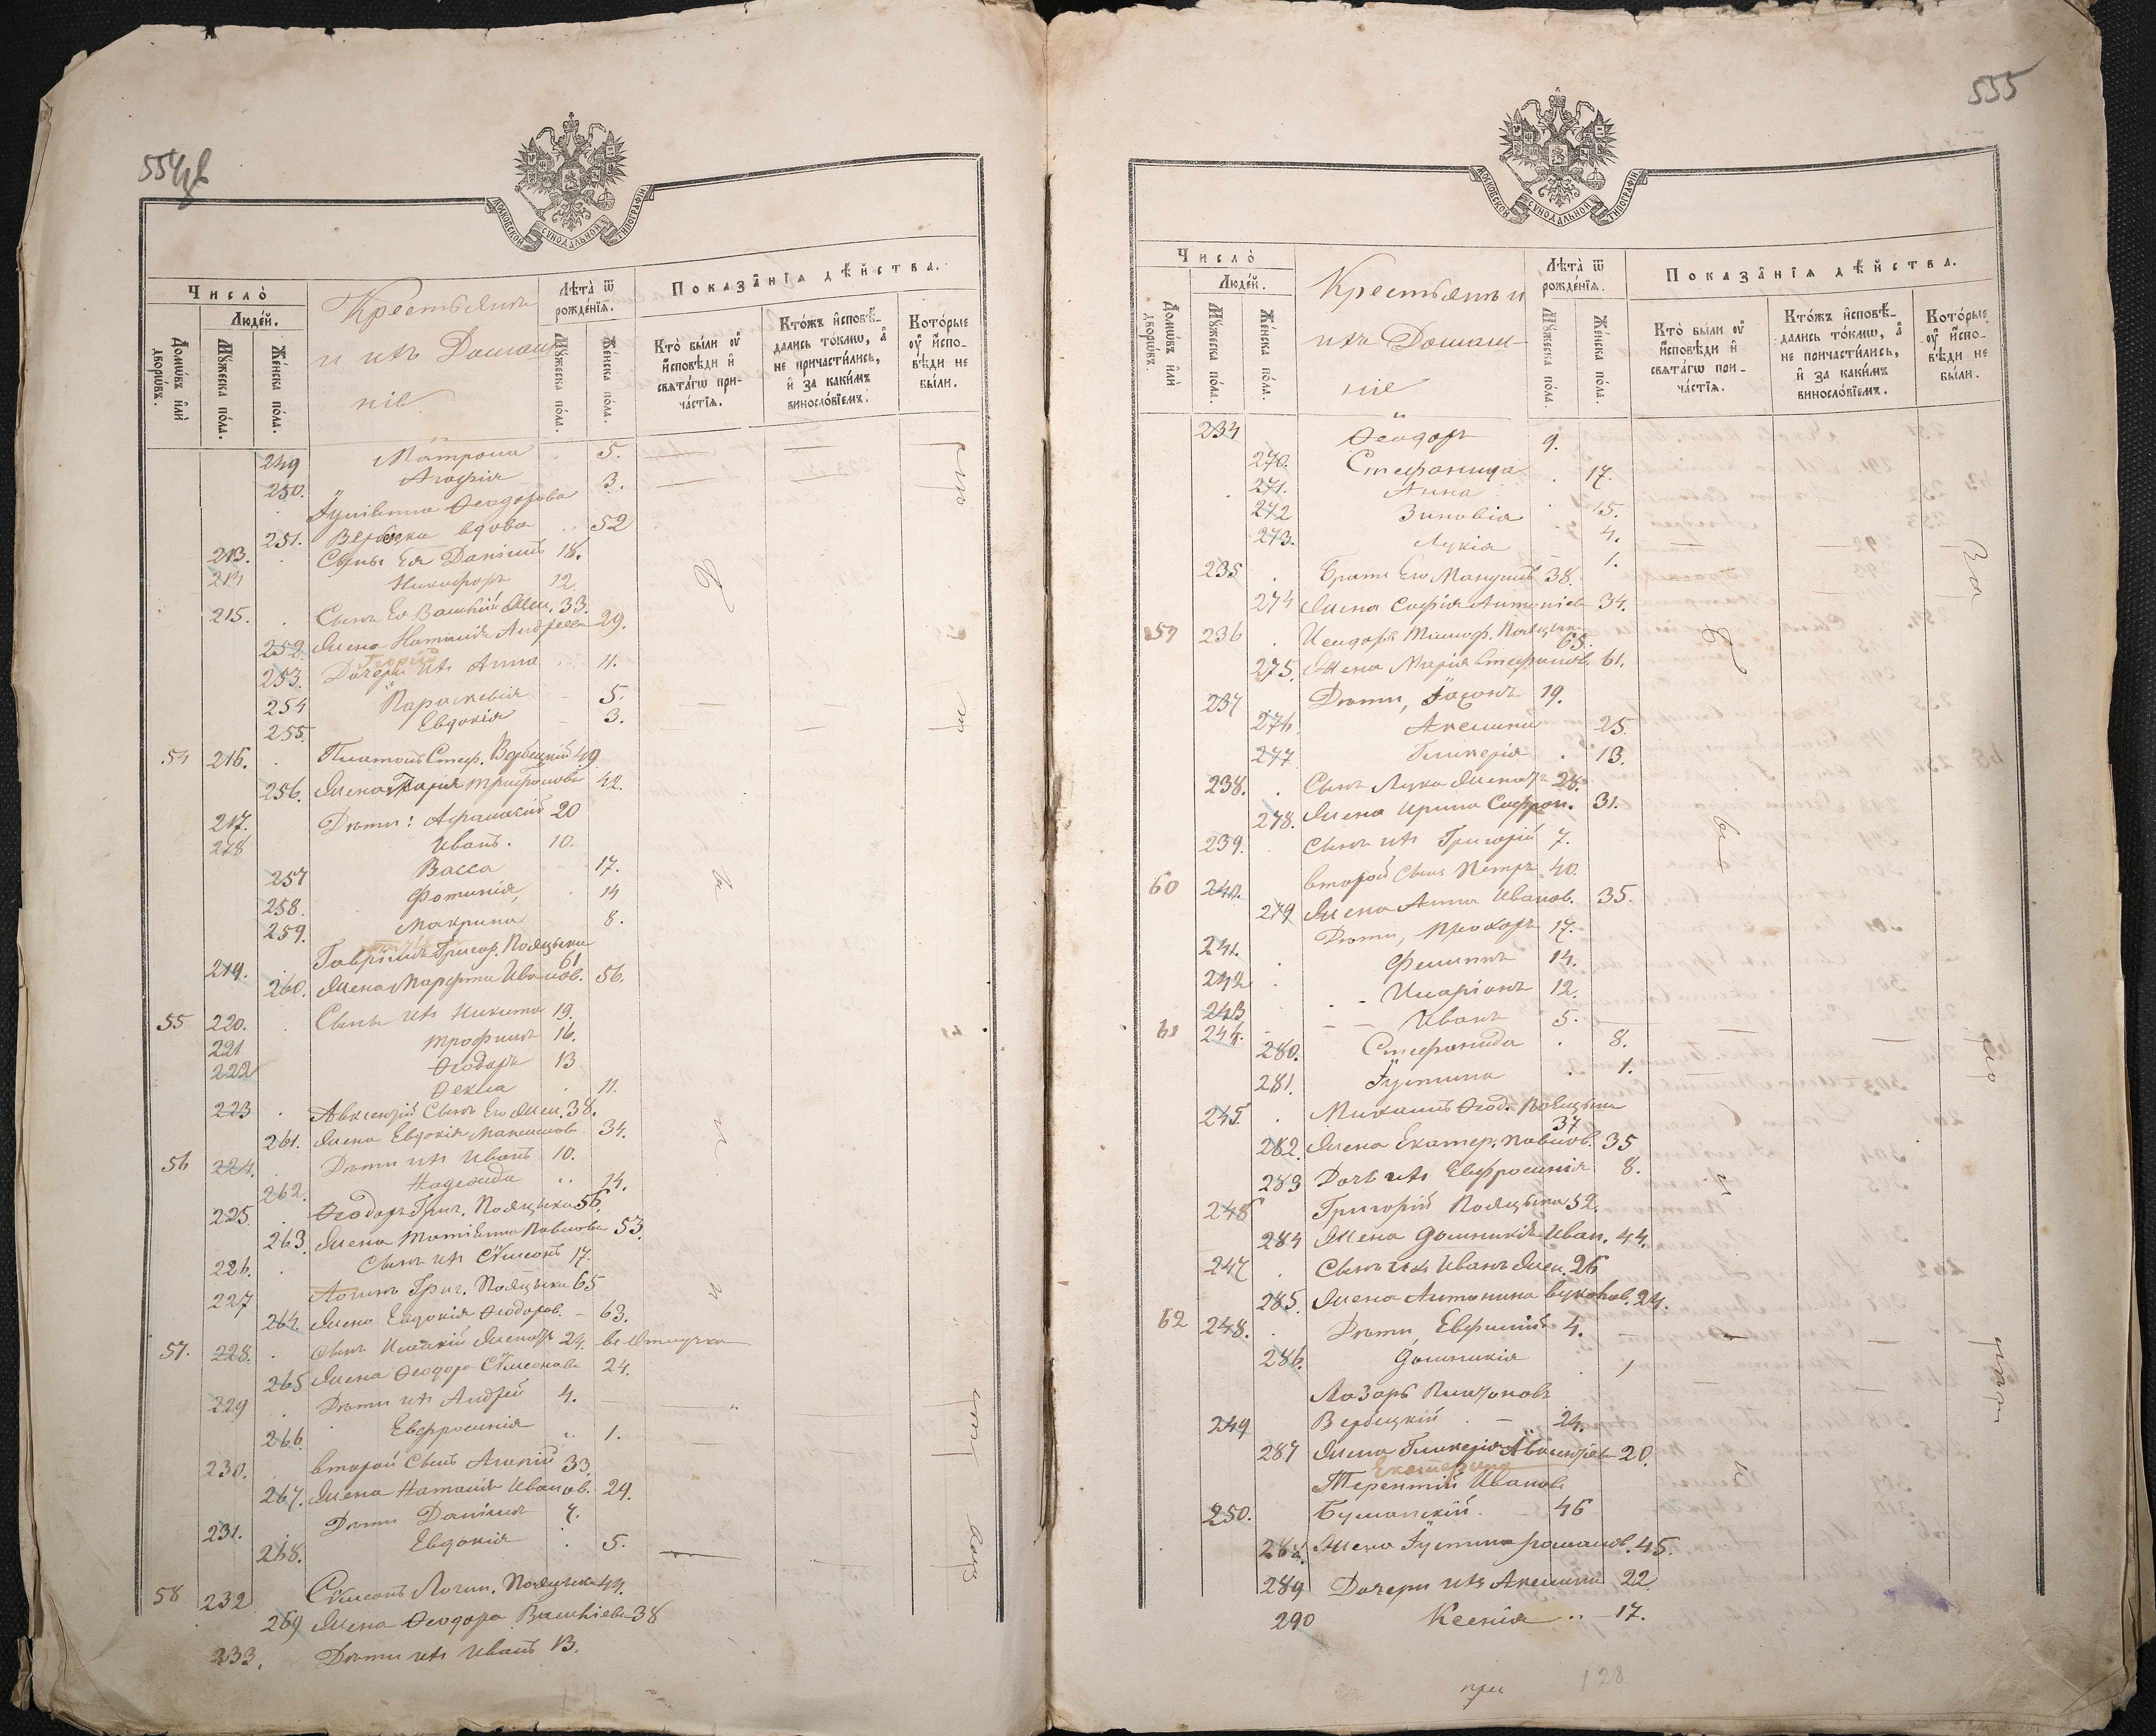 554об
МОСКОВСКОЙ СѴНОДАЛЬНОЙ ТИПОГРАФІИ
Число̀
Людéй.
Домѡ́въ и҆лѝ дворѡ́въ.
Мꙋ́жеска по́ла.
Же́нска по́ла.
Крестьяне
и ихъ Домаш
ніе
Лѣта̀ ѿ рожде́нїѧ.
Мꙋ́жеска по́ла.
Же́нска по́ла.
Показа̑нїѧ дѣ́йства.
Кто̀ бы́ли ᲂу҆ и҆сповѣ́ди и҆ свѧта́гѡ при-
ча́стїѧ.
Кто́жъ и҆сповѣ́-
дались то́кмѡ, а҆
не причасти́лись,
и҆ за каки́мъ
винословїемъ.
Кото́рые
ᲂу҆ и҆спо-
вѣ́ди не
бы́ли.
249 Матрона 5.
250. Агафія 3.
Іуліанна Ѳеодорова
251. Вербецка вдова 52
213. Сыны Ея Даніилъ 18.
214 Никифоръ 12
215. Сынъ Ея Василій Жен. 33.
252. Жена Наталія Андреева 29.
Георгій
253. Дочери ихъ Анна 11.
254 Параскевія 5.
255. Евдокія 3.
54 216. Платонъ Стеф. Вербецкій 49
256. Жена Марія Трифонова 42.
217. Дѣти: Афанасій 20
218 Иванъ. 10.
257 Васса 17.
258. Фотинія, 14
259. Макрина 8.
Гавріилъ Григор. Поляцыка
219. 61
260. Жена Марфа Иванов. 56.
55 220. Сынъ ихъ Никита 19.
221 Трофимъ 16.
222 Ѳеодоръ 13
Ѳекла 11.
223 Авксентій Сынъ Его Жен. 38.
261. Жена Евдокія Максимов. 34.
56 224. Дѣти ихъ Иванъ 10.
262. Надежда 14.
225. Ѳеодоръ Григ. Поляцыка 56.
263. Жена Татіанна Павлова 53.
226. Сынъ ихъ Сѵмеонъ 17.
227 Логинъ Григ. Поляцыка 65
264. Жена Евдокія Ѳеодоров. 63.
57. 228. Сынъ Женатъ 24. въ Отлучкѣ
265 Жена Ѳеодора Сѵмеонова 24.
229 Дѣти ихъ Андрей 4.
266. Евфросинія 1.
230. второй Сынъ 33.
267. Жена Наталія Иванов. 29.
231. Дѣти Даніилъ 7.
268. Евдокія 5.
58 232 Сѵмеонъ Логин. Поляцыка 44.
269 Жена Ѳеодора Василіева 38
233. Дѣти ихъ Иванъ 13.
555
МОСКОВСКОЙ СѴНОДАЛЬНОЙ ТИПОГРАФІИ
Число̀
Людéй.
Домѡ́въ и҆лѝ дворѡ́въ.
Мꙋ́жеска по́ла.
Же́нска по́ла.
Крестьяне и
ихъ Домаш-
ніе
Лѣта̀ ѿ рожде́нїѧ.
Мꙋ́жеска по́ла.
Же́нска по́ла.
Показа̑нїѧ дѣ́йства.
Кто̀ бы́ли ᲂу҆ и҆сповѣ́ди и҆ свѧта́гѡ при-
ча́стїѧ.
Кто́жъ и҆сповѣ́-
дались то́кмѡ, а҆
не причасти́лись,
и҆ за каки́мъ
винословїемъ.
Кото́рые
ᲂу҆ и҆спо-
вѣ́ди не
бы́ли.
234 Ѳеодоръ 9.
270. Стефанида 17.
271. Анна 15.
272 Зиновія 4.
273. Лукія 1.
235 Братъ Его Мануилъ 38.
274 Жена Софія Антоніев. 34.
59 236 Исидоръ Тимоф. Поляцыка 65.
275. Жена Марія Стефанов. 61.
237 Дѣти, Іасонъ 19.
276 Акелина 25.
277 Гликерія 13.
238. Сынъ Лука Женатъ 28.
278. Жена Ирина Софрон. 31.
239. Сынъ ихъ Григорій 7.
60 240. второй Сынъ Петръ 40.
279 Жена Анна Иванов. 35.
241. Дѣти, Прохоръ 17.
242 Филиппъ 14.
243 Иларіонъ 12.
61 244. Иванъ 5.
280. Стефанида 8.
281. Іустина 1.
245. Михаилъ Ѳеод. Поляцыка 37
282. Жена Екатер. Павлов. 35
283 Дочь ихъ Евфросинія 8.
246 Григорій Поляцыка 52.
284 Жена Домникія Иван. 44.
247 Сынъ ихъ Иванъ Жен. 26
285. Жена Антонина Вуколов. 24.
62 248. Дѣти, Евфимій 4.
286. Домникія 1
Лазарь Платонов
249 Вербецкій 24.
287 Жена Гликерія Авксентіев. 20.
Екатерина
Терентій Иванов
250. 46
288. Жена Іустина Романов. 45.
289 Дочери ихъ Акелина 22
290 Ксенія 17.
при
128